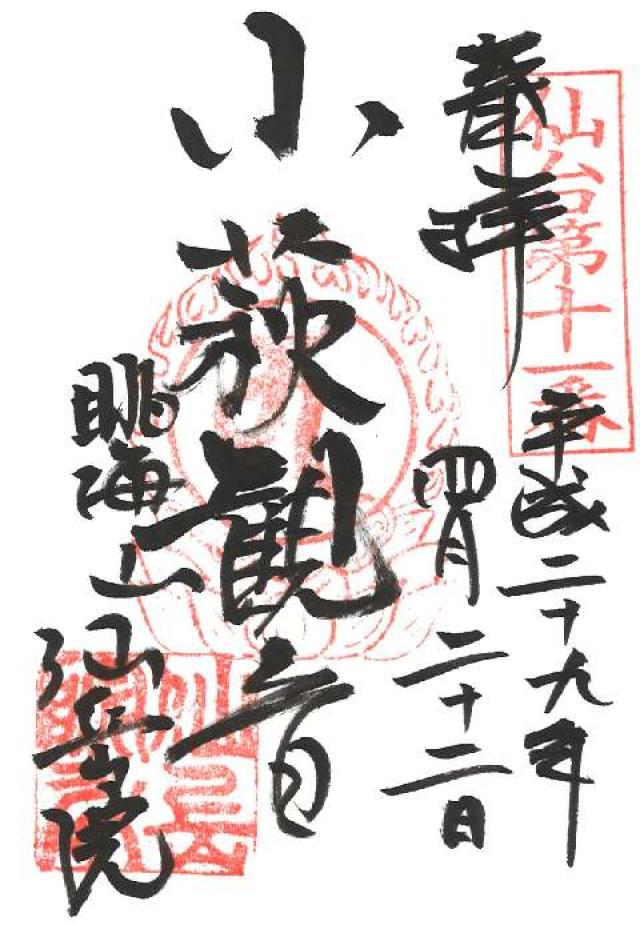 奉拝
仙台第十一番
平成二十九年
四月二十二日
小萩観音
眺海山
仙岳院